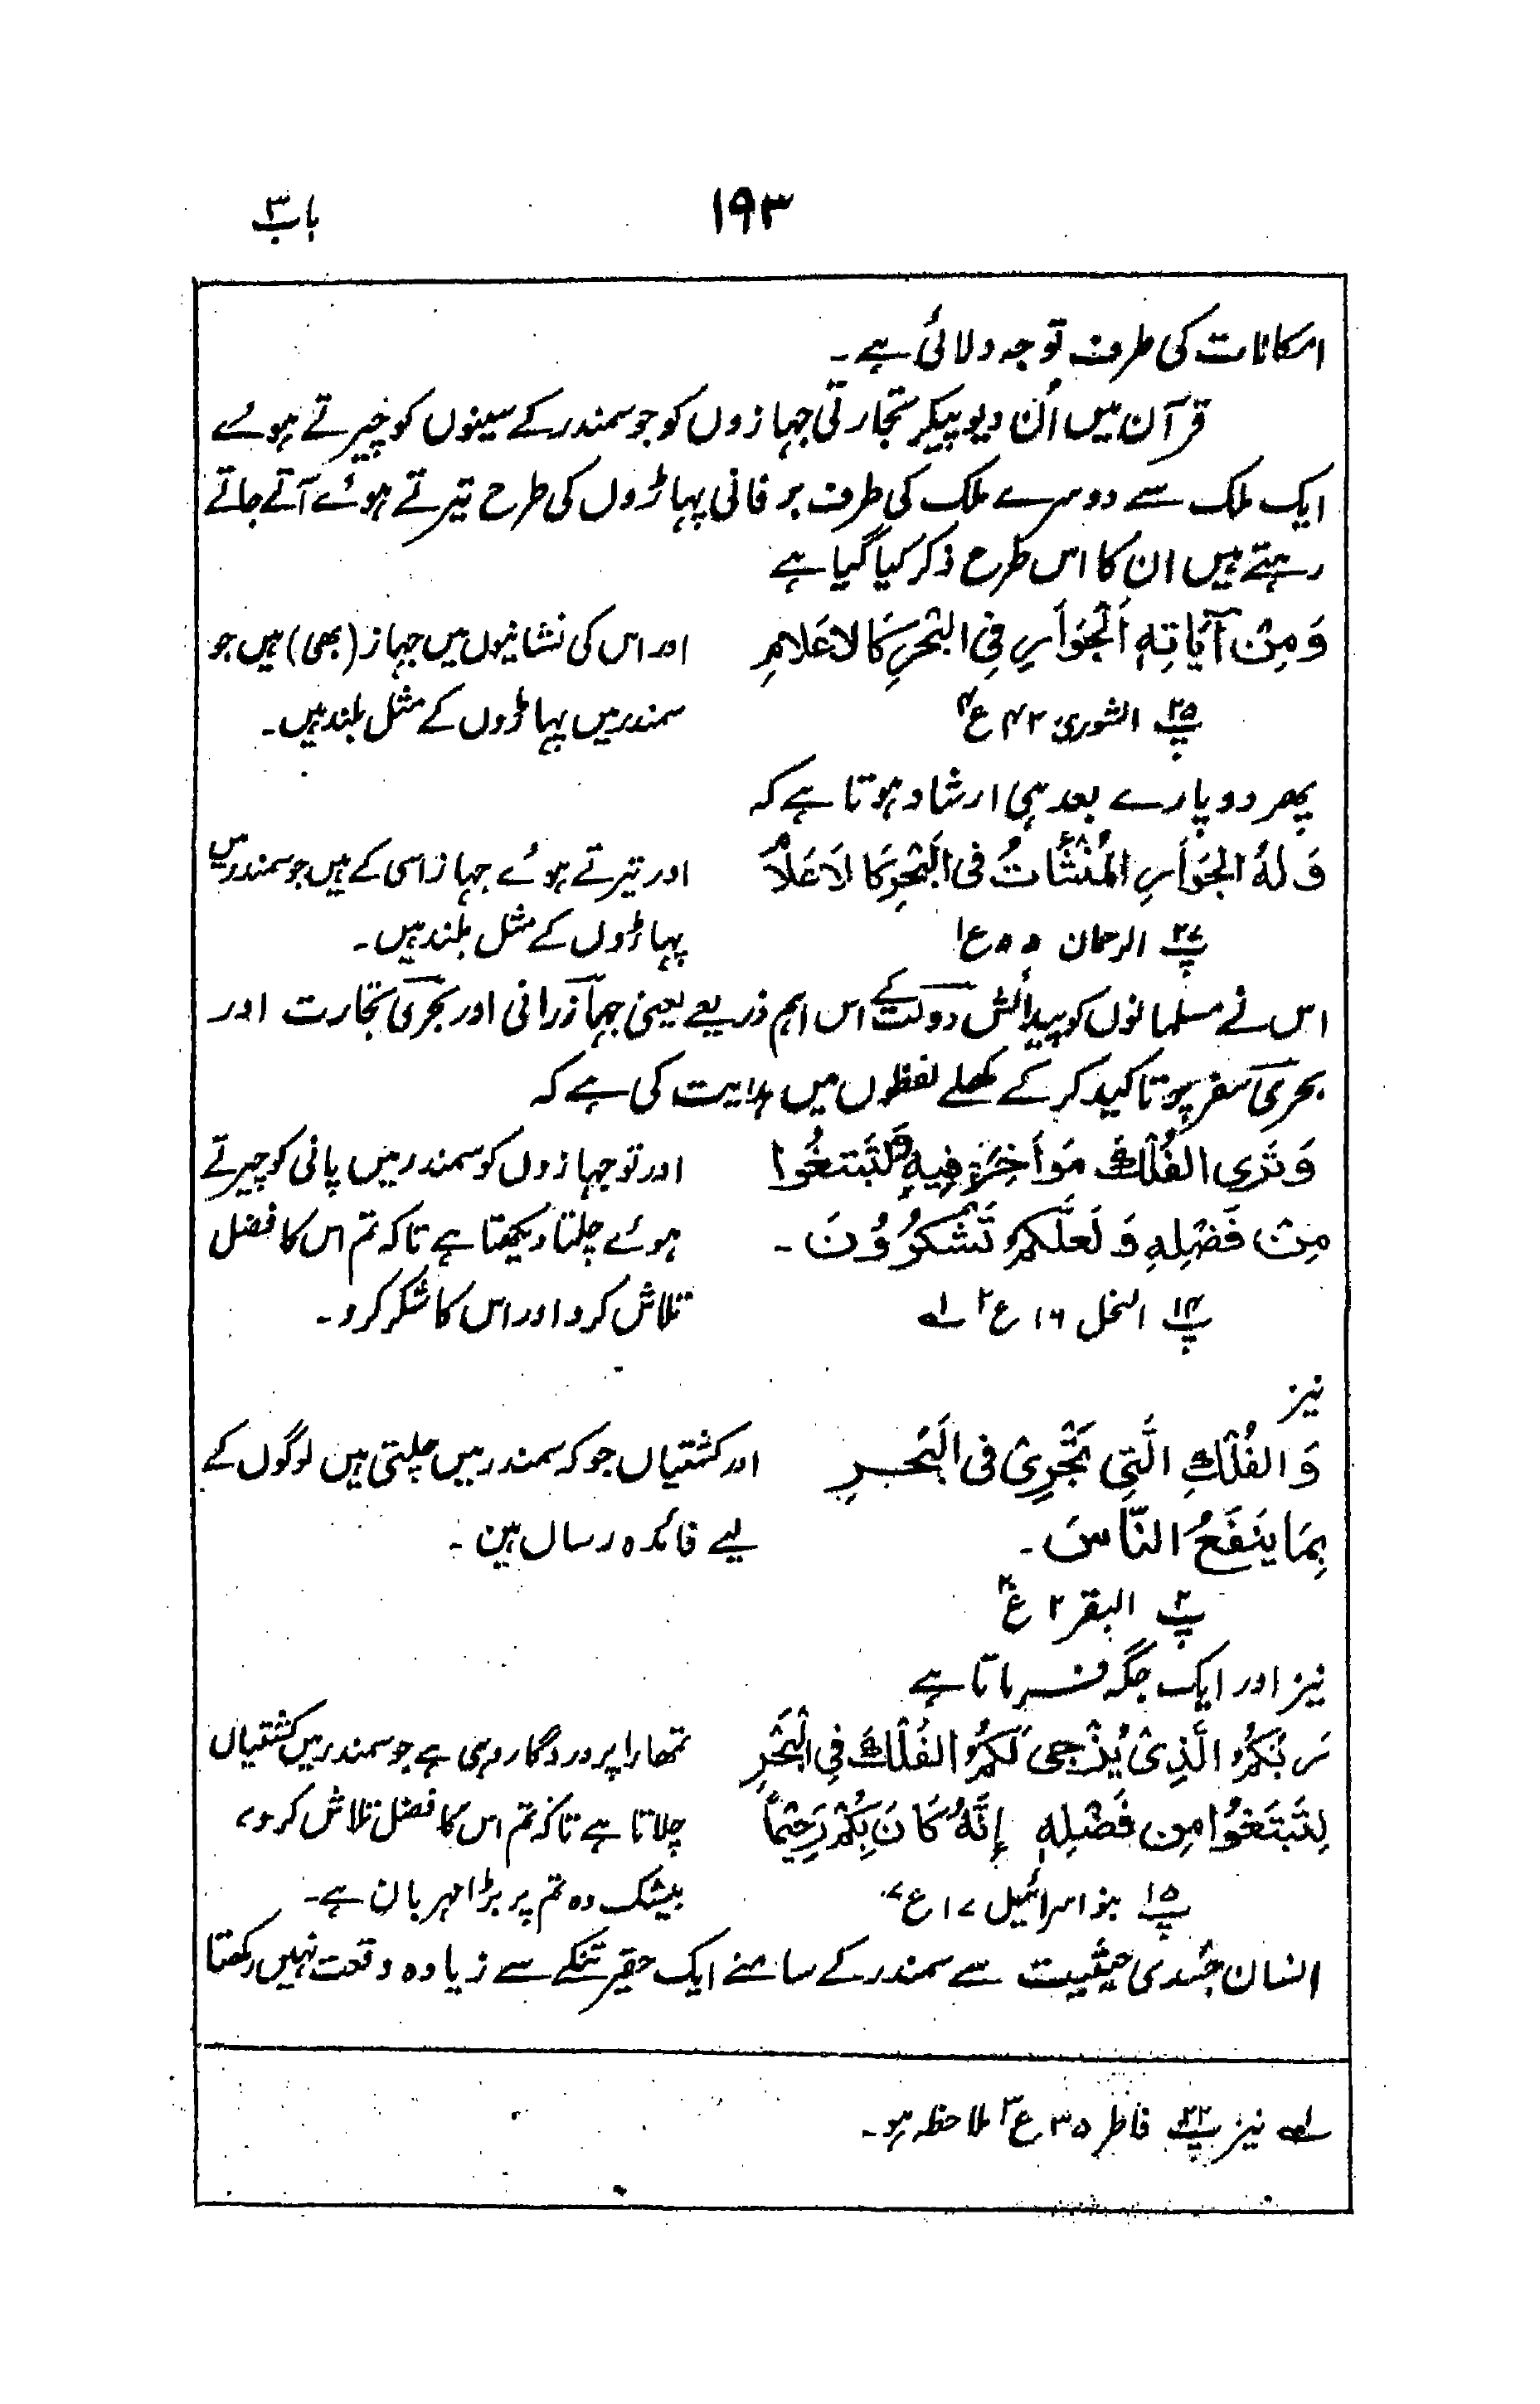 ۱۹۳
باب ۳
امکانات کی طرف توجہ دلائی ہے ۔
قرآن میں اُن دیو پیکر تجارتی جہازوں کو جو سمندر کے سینوں کو چیرتے ہوے
ایک ملک سے دوسرے ملک کی طرف برفانی پہاڑوں کی طرح تیرتے ہوے آتے جاتے
رہتے ہیں ان کا اس طرح ذکر کیا گیا ہے
وَمِنْ آیَاتِہٖ اَلْجَوَارِ فِی الْبَحْرِ کَالاَعْلَامِ
پ ۲۵ الشوریٰ ۴۲ ع ۴
اور اس کی نشانیوں میں جہاز (بھی) ہیں جو
سمندر میں پہاڑوں کے مثل بلند ہیں ۔
پھر دو پارے بعد ہی ارشاد ہوتا ہے کہ
وَلَہُ الْجَوَارِ الْمُنْشَئَاتُ فی الْبَحْرِ کَالاَعْلَامِ
پ ۲۷ الرحمان ۵۵ ع ۱
اور تیرتے ہوے جہاز اسی کے ہیں جو سمندر میں
پہاڑوں کے مثل بلند ہیں ۔
اس نے مسلمانوں کو پیدائش دولت کے اس اہم ذریعے یعنی جہازرانی اور بحری تجارت اور
بحری سفر پر تاکید کر کے کھلے لفظوں میں ہدایت کی ہے کہ
وَتَرَی الْفُلْکَ مَوَاخِرَ فِیْہِ وَلِتَبْتَغُوا
مِنْ فَضْلِہٖ وَلَعَلَّکُمْ تَشْکُرُوْنَ ۔
پ ۱۴ النحل ۱۶ ع ۲ لہ
اور تو جہازوں کو سمندر میں پانی کو چیرتے
ہوئے چلتا دیکھتا ہے تاکہ تم اس کا فضل
تلاش کرو اور اس کا شکر کرو ۔
نیز
وَالْفُلْکِ الَّتِی تَجْرِیْ فی الْبَحْرِ
بِمَا یَنْفَعُ النَّاسَ ۔
پ ۲ البقر ۲ ع
اور کشتیاں جو کہ سمندر میں چلتی ہیں لوگوں کے
لیے فائدہ رساں ہین ۔
نیز اور ایک جگہ فرماتا ہے
رَبُّکُمُ الَّذِیْ یُزْجِی لَکُمُ الْفُلْکَ فِی الْبَحْرِ
لِتَبْتَغُوا مِن فَضْلِہٖ إِنَّہُ کَانَ بِکُمْ رَحِیْماً
پ ۱۵ بنو اسرائیل ۱۷ ع ۷
تمھارا پروردگار وہی ہے جو سمندر میں کشتیاں
چلاتا ہے تاکہ تم اس کا فضل تلاش کرو ،
بیشک وہ تم پر بڑا مہربان ہے ۔
انسان جسدی حیثیت سے سمندر کے سامنے ایک حقیر تنکے سے زیادہ وقعت نہیں رکھتا
لہ نیز پ ۲۲ فاطر ۳۵ ع ۳ ملاحظہ ہو ۔